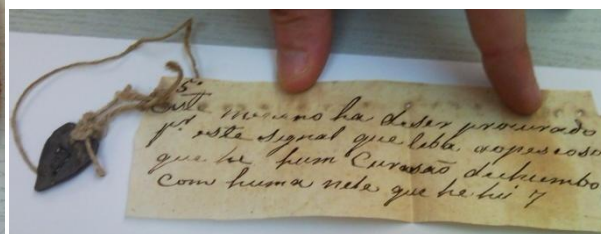 5º
Este menino ha de ser procurado
pr. este signal que leba aopescoso
que he hum Curasão duhumbo
com huma nete que he hũ 7